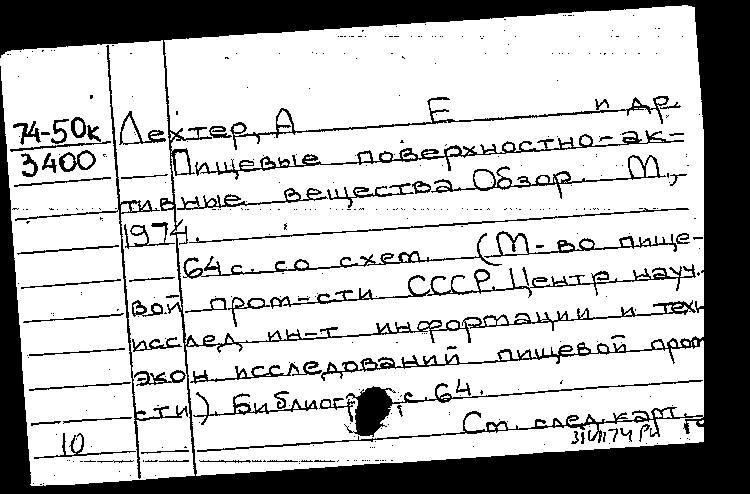 74-50к Лехтер, А Е и др.
3400 Пищевые поверхностно-ак-
тивные вещества Обзор. М.,
1974.
64 с. со схем. (М-во пище-
вой пром-сти СССР. Центр науч.
исслед ин-т информации и техн
экон исследований пищевой пром
сти). Библиогр с 64.
См. след. карт.
10